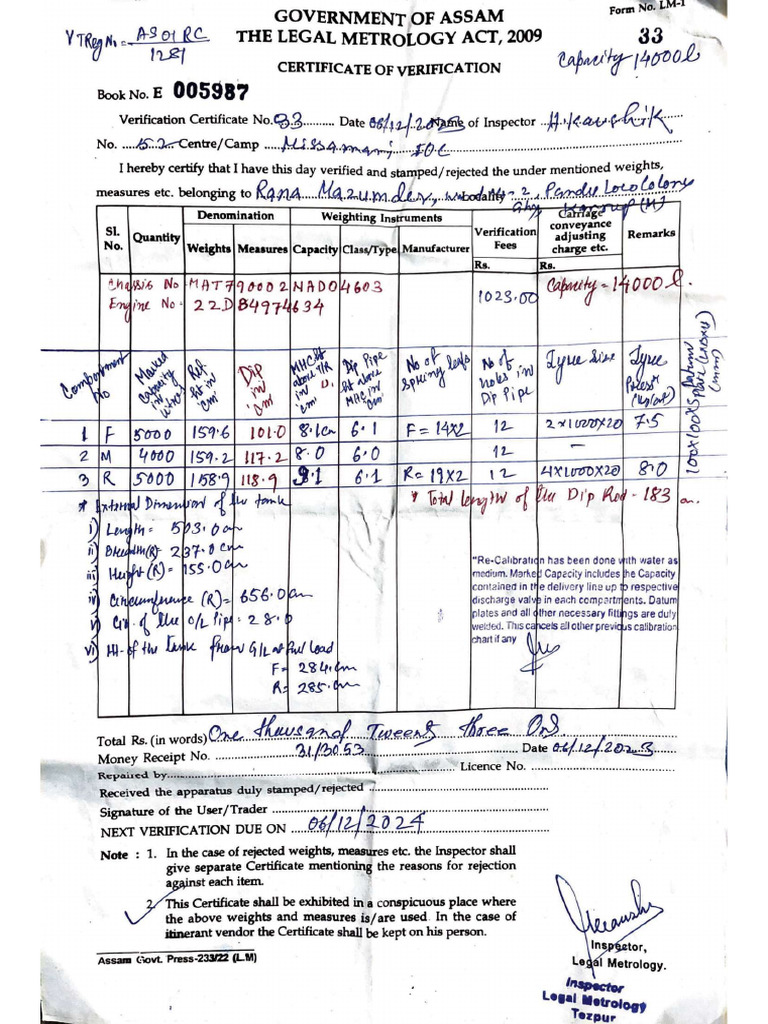 Form No. LM-1
GOVERNMENT OF ASSAM
THE LEGAL METROLOGY ACT, 2009
CERTIFICATE OF VERIFICATION
AS01RC
1281
33
Capacity 14000l
Book No. E 005987
Verification Certificate No. 33 Date 06/12/2023 Name of Inspector H. Kaushik
No. 52 Centre/Camp Missamari IOC
I hereby certify that I have this day verified and stamped/rejected the under mentioned weights,
measures etc. belonging to Rana Mazumder, Locality 2, Pandu Loco Colony
Ghy Kamrup (M)
Sl. No. Quantity Denomination Weights Measures Weighting Instruments Capacity Class/Type Manufacturer Verification Fees Rs. Carriage conveyance adjusting charge etc. Rs. Remarks
Chassis No MAT790002NAD04603 1023.00 Capacity = 14000 l.
Engine No - 22D84974634
Compartment No Marked Capacity in litre Ref. ht in cm Dip in 'cm' MHC ht above T/R in 'cm' Dip Pipe ht above MHC in 'cm' No of spring leafs No of holes in Dip Pipe Tyre Size Tyre Press
100x100x5 Datum Plate (mm)
1 F 5000 159.6 101.0 8.1cm 6.1 F = 14x2 12 2x1000x20 7.5
2 M 4000 159.2 117.2 8.0 6.0 12 -
3 R 5000 158.9 118.9 8.1 6.1 R = 19x2 12 4x1000x20 8.0
* External Dimension of the tank
* Total length of the Dip Rod - 183 cm.
i) Length = 503.0 cm
ii) Breadth(R) = 237.0 cm
iii) Height (R) = 155.0 cm
iv) Circumference (R) = 656.0 cm
v) Cir. of the O/L Pipe = 28.0
vi) Ht. of the tank from G/L at full load
F = 284. cm
R = 285. cm
"Re-Calibration has been done with water as
medium. Marked Capacity includes the Capacity
contained in the delivery line up to respective
discharge valve in each compartments. Datum
plates and all other necessary fittings are duly
welded. This cancels all other previous calibration
chart if any
Total Rs. (in words) One thousand Tweent three Only
Money Receipt No. 31/3053 Date 06/12/2023
Repaired by Licence No.
Received the apparatus duly stamped/rejected
Signature of the User/Trader
NEXT VERIFICATION DUE ON 06/12/2024
Note : 1. In the case of rejected weights, measures etc. the Inspector shall
give separate Certificate mentioning the reasons for rejection
against each item.
2. This Certificate shall be exhibited in a conspicuous place where
the above weights and measures is/are used. In the case of
itinerant vendor the Certificate shall be kept on his person.
Assam Govt. Press-233/22 (L.M)
Inspector,
Legal Metrology.
Inspector
Legal Metrology
Tezpur